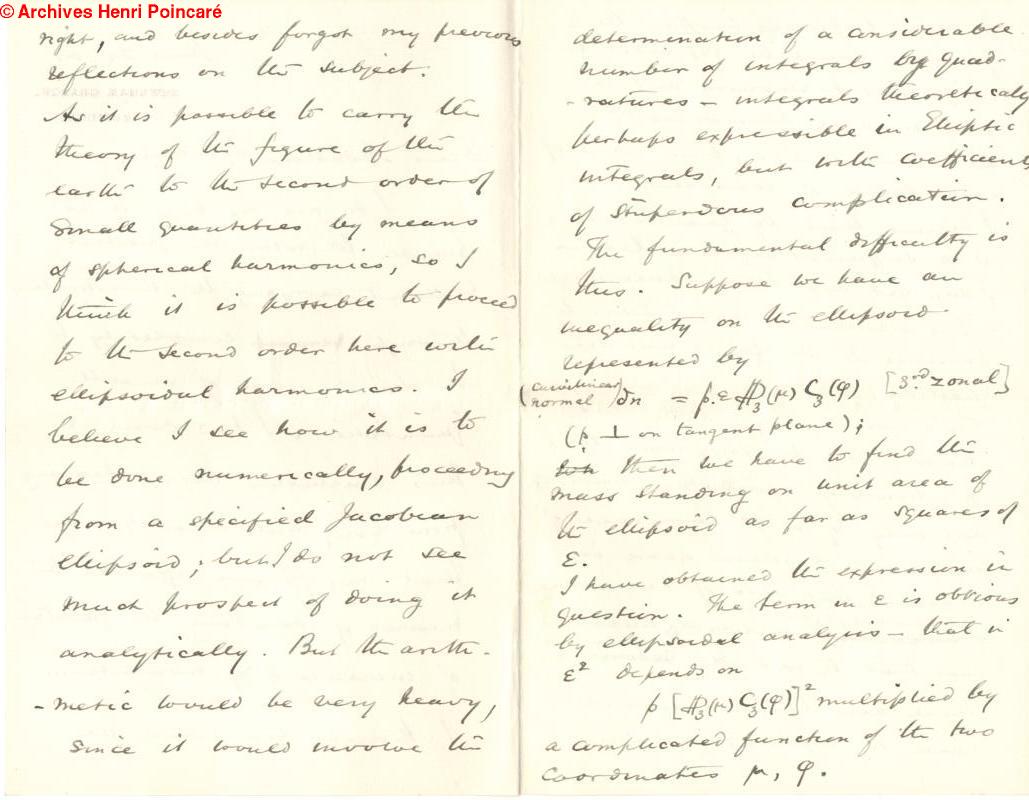 © Archives Henri Poincaré
right, and besides forgot my previous
reflections on the subject.
As it is possible to carry the
theory of the figure of the
earth to the second order of
small quantities by means
of spherical harmonics, so I
think it is possible to proceed
to the second order here with
ellipsoidal harmonics. I
believe I see how it is to
be done numerically, proceeding
from a specified Jacobian
ellipsoid; but I do not see
much prospect of doing it
analytically. But the arith-
-metic would be very heavy,
since it would involve the
determination of a considerable
number of integrals by quad-
-ratures – integrals theoretically
perhaps expressible in Elliptic
integrals, but with coefficients
of stupendous complication.
The fundamental difficulty is
this. Suppose we have an
inequality on the ellipsoid
represented by
(curvilinear normal) δn = p.ε ℙ₃(μ) C₃(φ) [3rd zonal]
(p ⊥ on tangent plane);
then we have to find the
mass standing on unit area of
the ellipsoid as far as squares of
ε.
I have obtained the expression in
question. The term in ε is obvious
by ellipsoidal analysis – that in
ε² depends on
p [ℙ₃(μ) C₃(φ)]² multiplied by
a complicated function of the two
coordinates μ, φ.